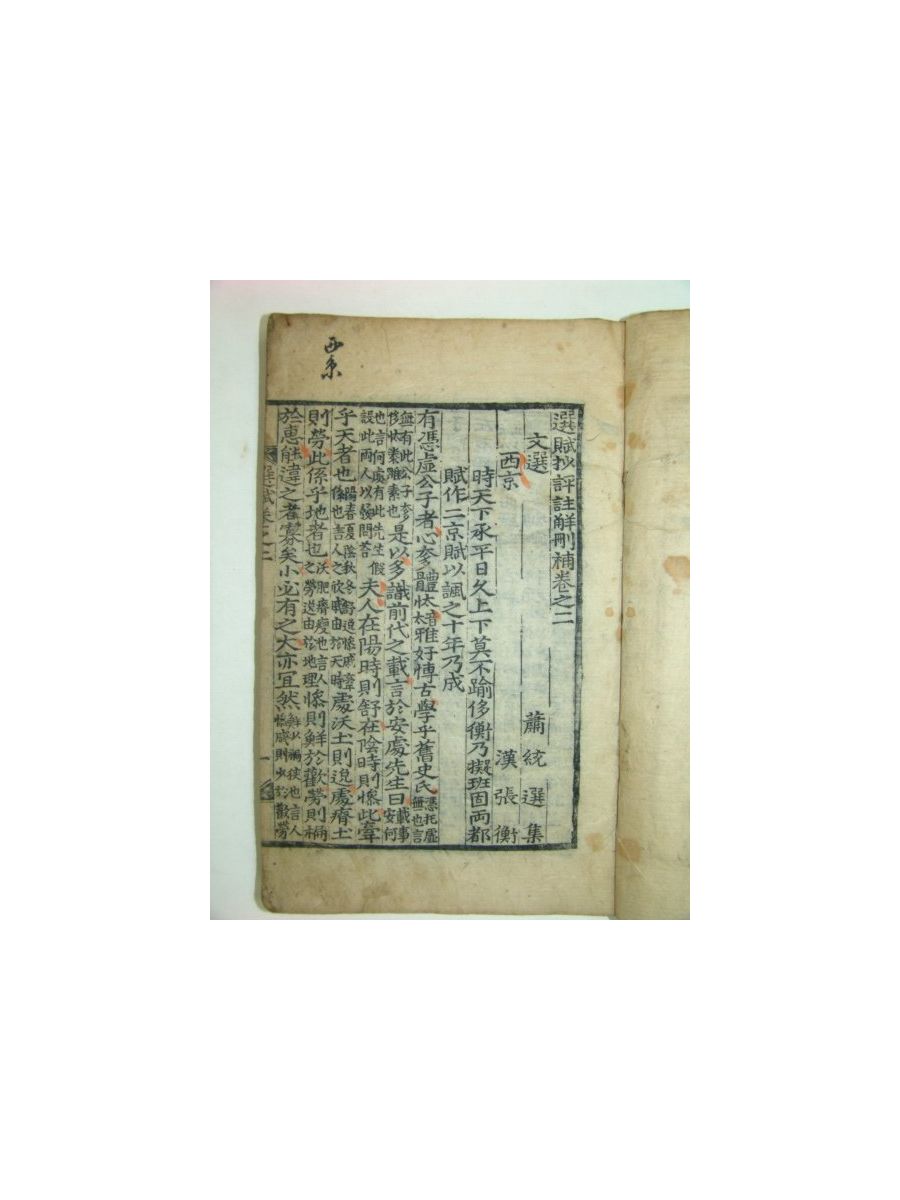 西京
選賦抄評註解刪補卷之二
文選 蕭統選集
西京 漢張衡
時天下承平日久上下莫不踰侈衡乃擬班固両都
賦作二京賦以諷之十年乃成
有憑虛公子者心奓體忲雅好博古學乎舊史氏憑托虛無也言
無有此公子奓是以多識前代之載言於安處先生曰載事安何
也言何處有此先生假
設此兩人以發問荅夫人在陽時則舒在陰時則慘此牽
乎天者也陽春夏陰秋冬舒逸慘戚牽係也言人之欣戚由於天時處沃土則逸處瘠土
則勞此係乎地者也沃肥瘠瘦也言人之勞逸由於地理慘則鮮於歡勞則褊
於惠能違之者寡矣小必有之大亦宜然鮮少褊狹也言人慘戚則少於歡勞
選賦卷之二 一